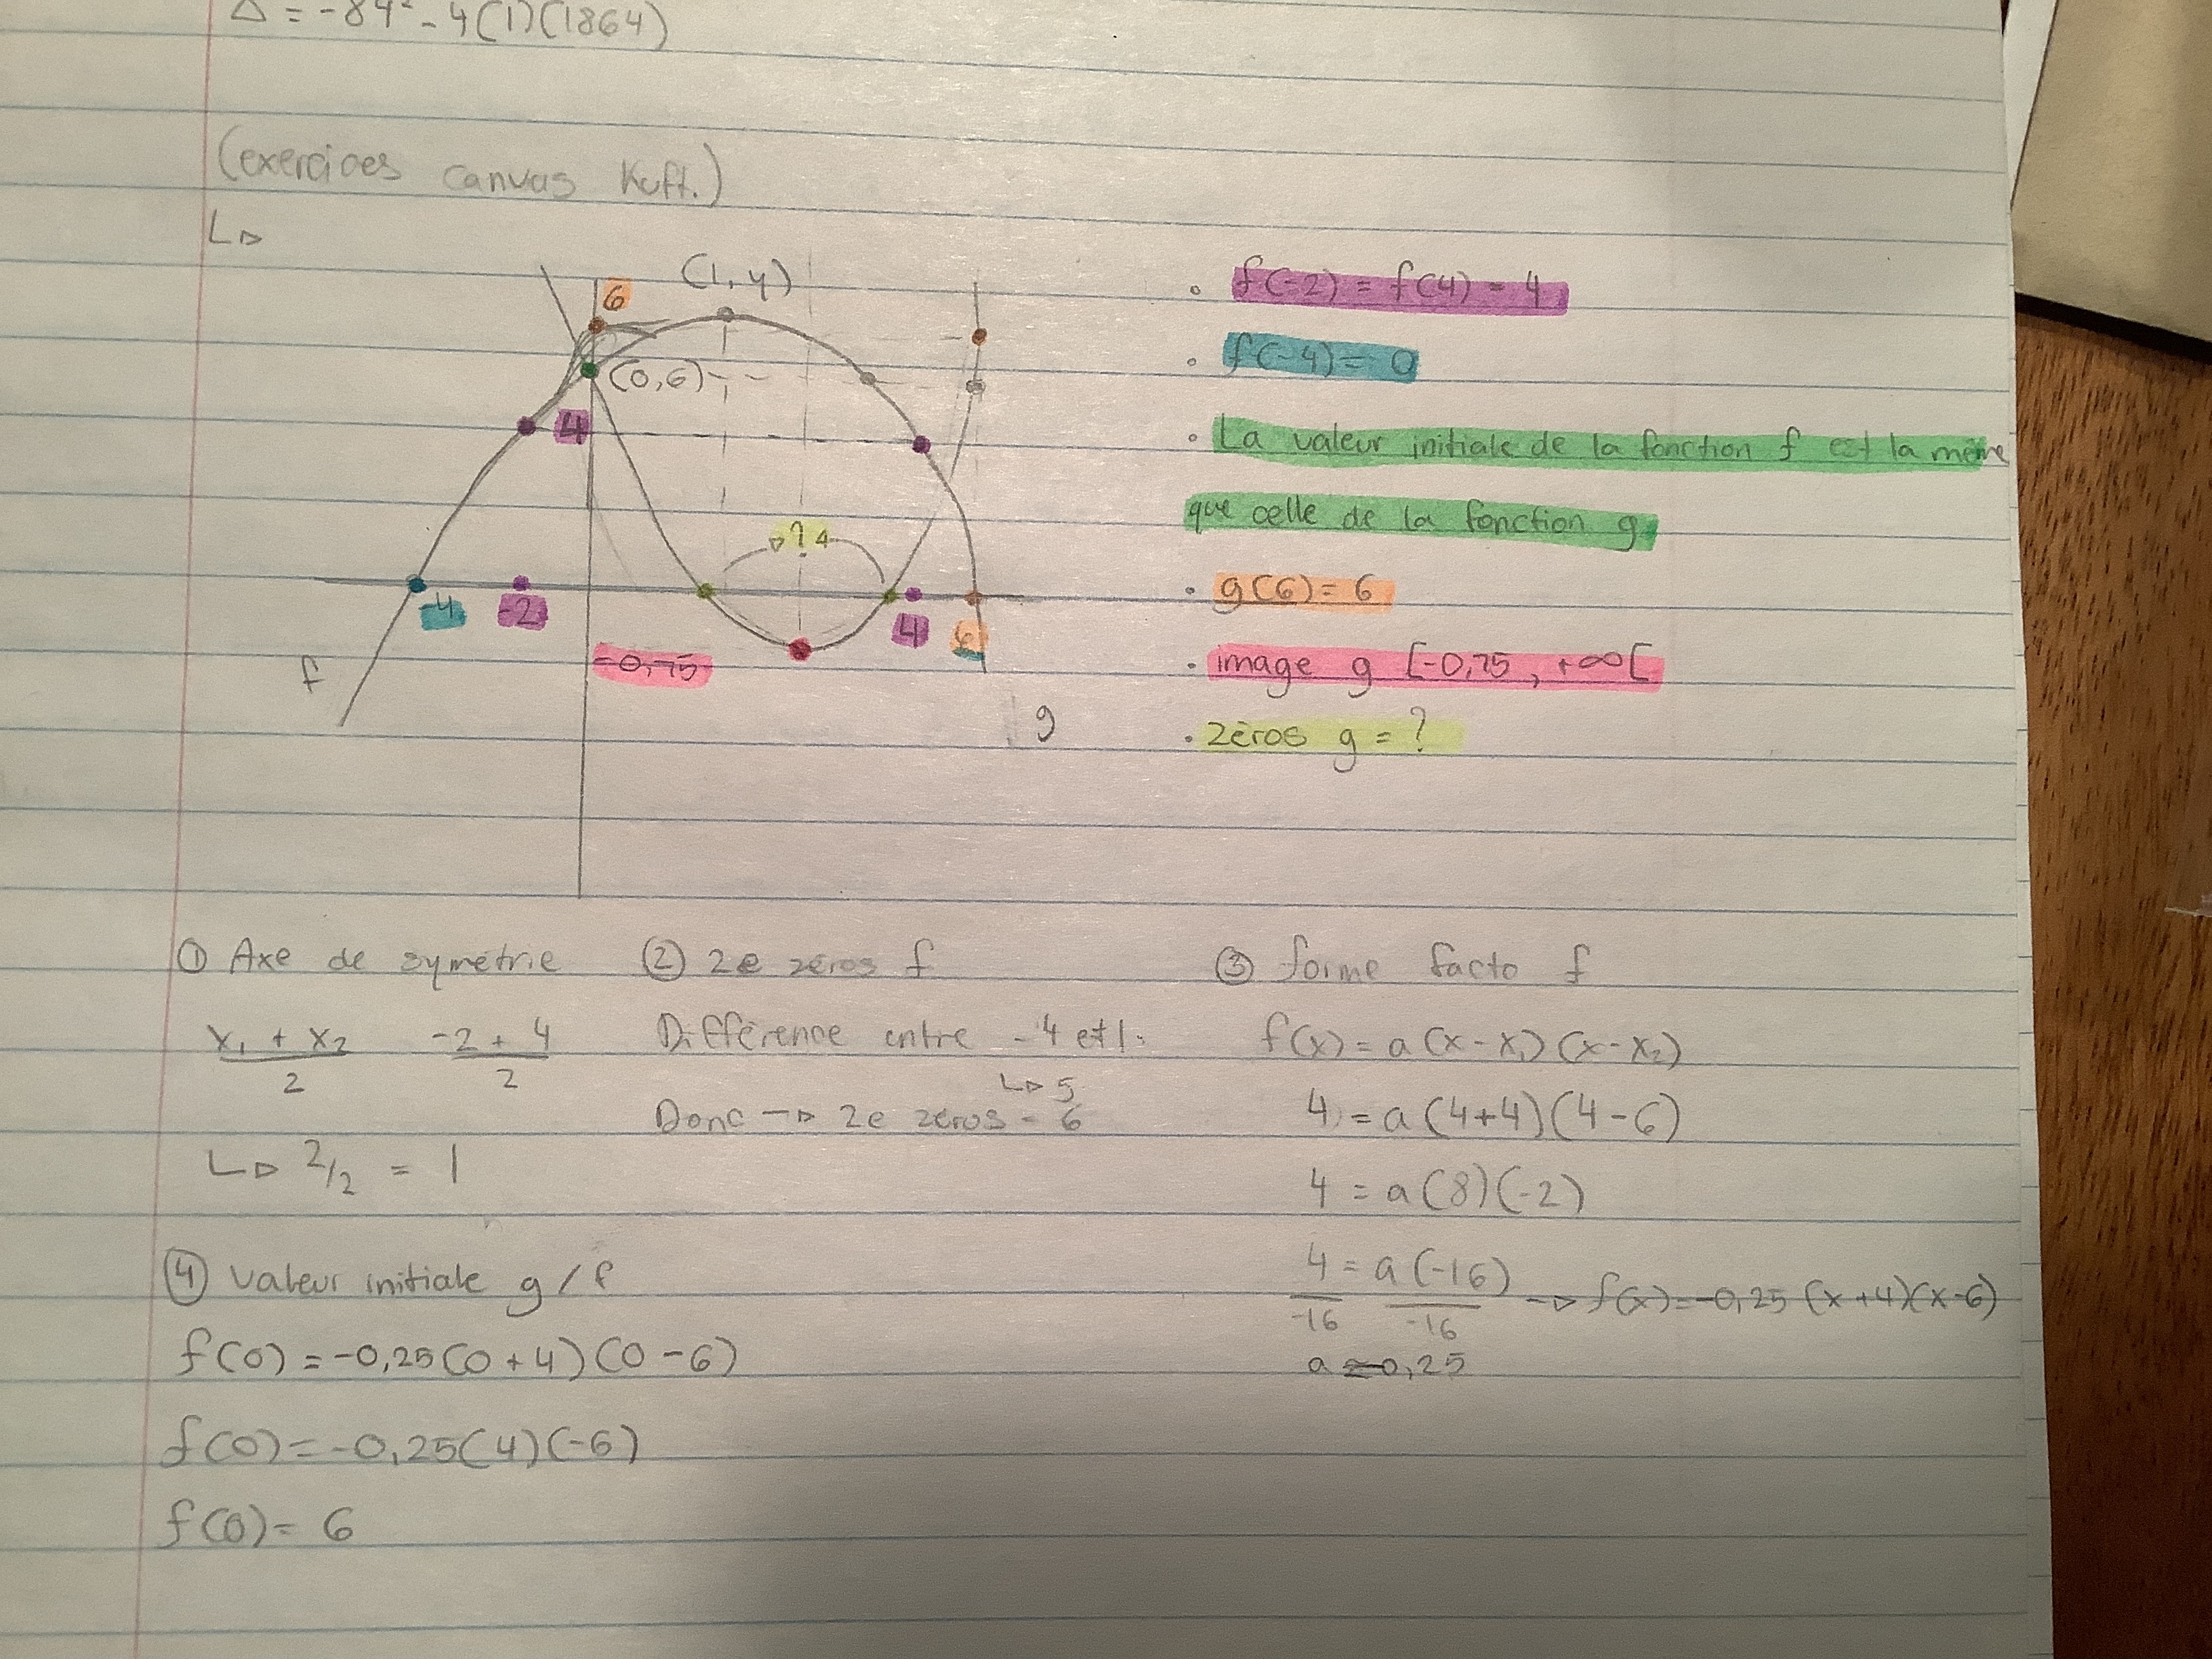 Δ = -84² - 4(1)(1864)
(exercices canvas Kuft.)
(1, 4)
6
(0,6)
4
? 4
-4
-2
4
6
-0,75
f
g
• f(-2) = f(4) = 4
• f(-4) = 0
• La valeur initiale de la fonction f est la même
que celle de la fonction g
• g(6) = 6
• image g [-0,75 , +∞[
• zéros g = ?
① Axe de symétrie
x₁ + x₂ / 2   -2 + 4 / 2
↳ 2/2 = 1
② 2e zéros f
Différence entre -4 et 1.
↳ 5
Donc → 2e zéros = 6
③ forme facto f
f(x) = a(x-x₁)(x-x₂)
4 = a(4+4)(4-6)
4 = a(8)(-2)
4 = a(-16) → f(x) = -0,25(x+4)(x-6)
-16   -16
a = -0,25
④ valeur initiale g/f
f(0) = -0,25(0+4)(0-6)
f(0) = -0,25(4)(-6)
f(0) = 6